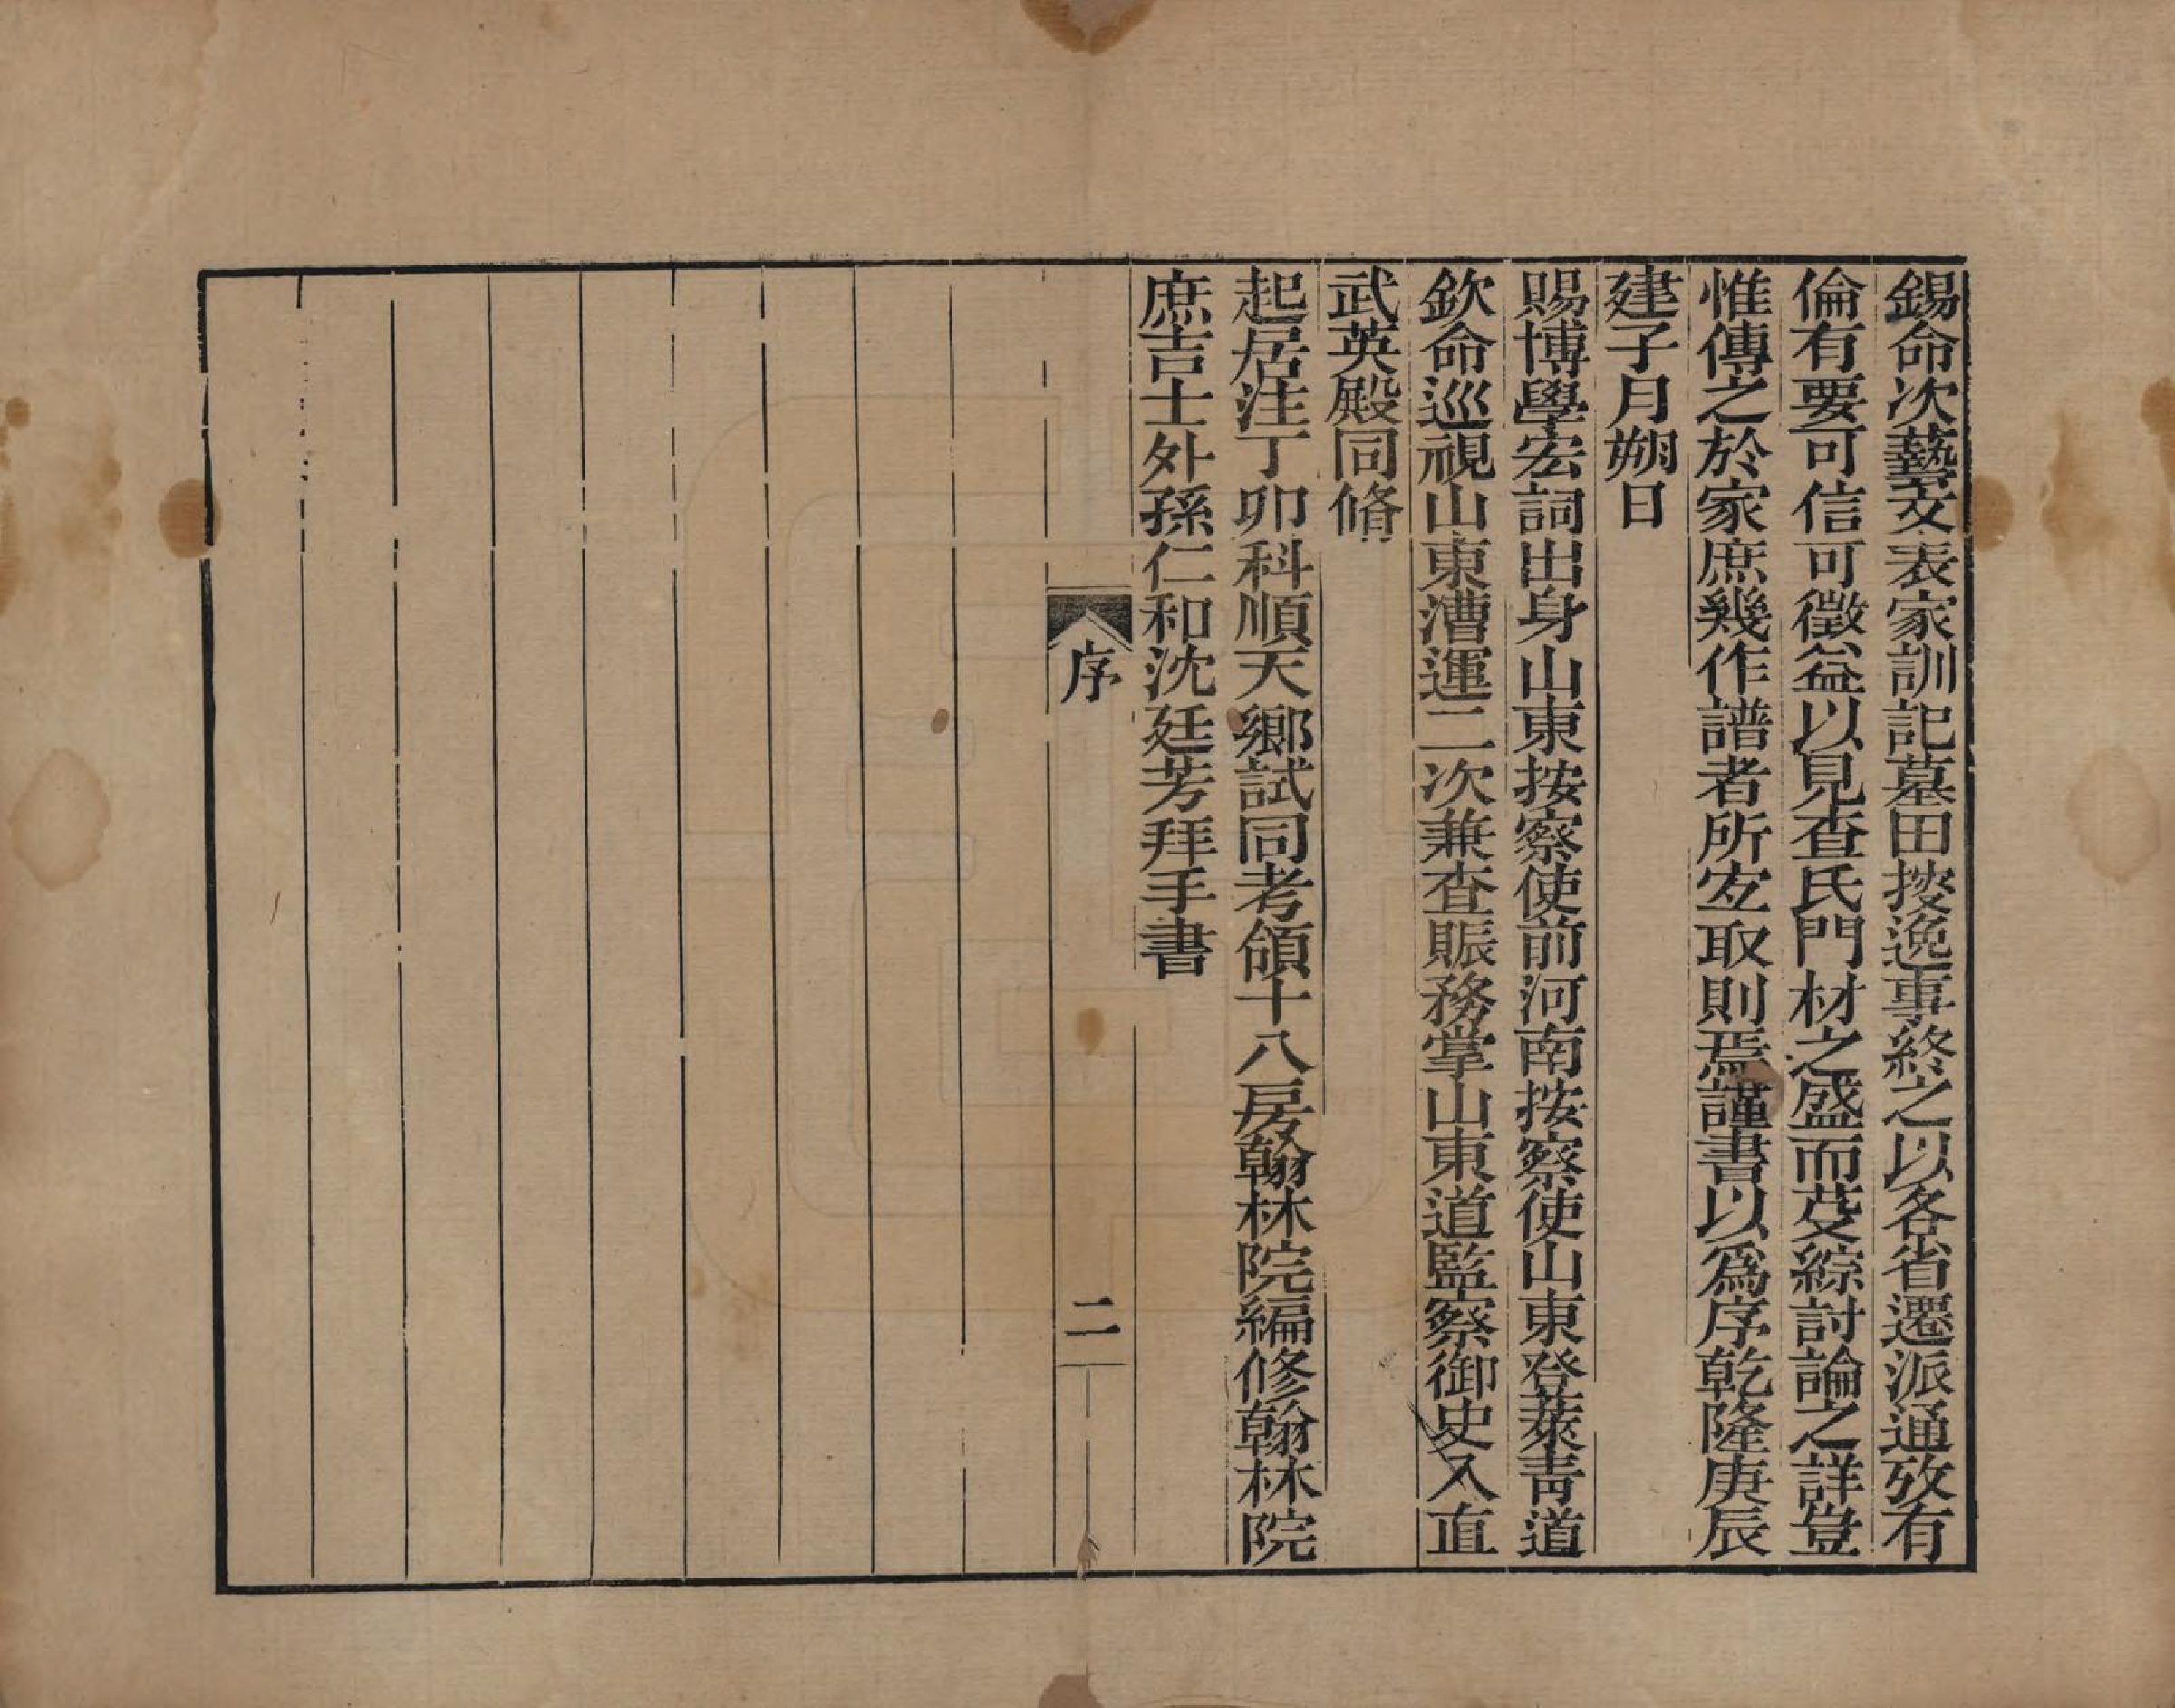 錫命次藝文表家訓記墓田按逸事終之以各省遷派通攷有
倫有要可信可徵益以見查氏門材之盛而芟綜討論之詳豈
惟傳之於家庶幾作譜者所宐取則焉謹書以爲序乾隆庚辰
建子月朔日
賜博學宏詞出身山東按察使前河南按察使山東登萊青道
欽命巡視山東漕運二次兼查賬務掌山東道監察御史入直
武英殿同脩
起居注丁卯科順天鄉試同考領十八房翰林院編修翰林院
庶吉士外孫仁和沈廷芳拜手書
序
二